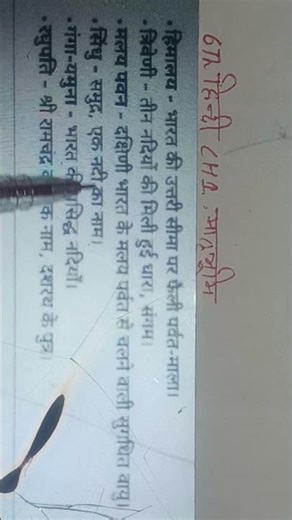 6th हिन्दी CH1. मातृभूमि
• हिमालय - भारत की उत्तरी सीमा पर फैली पर्वत-माला।
• त्रिवेणी - तीन नदियों की मिली हुई धारा, संगम।
• मलय पवन - दक्षिणी भारत के मलय पर्वत से चलने वाली सुगंधित वायु।
• सिंधु - समुद्र, एक नदी का नाम।
• गंगा-यमुना - भारत की सिद्ध नदियाँ।
• रघुपति - श्री रामचंद्र का नाम, दशरथ के पुत्र।